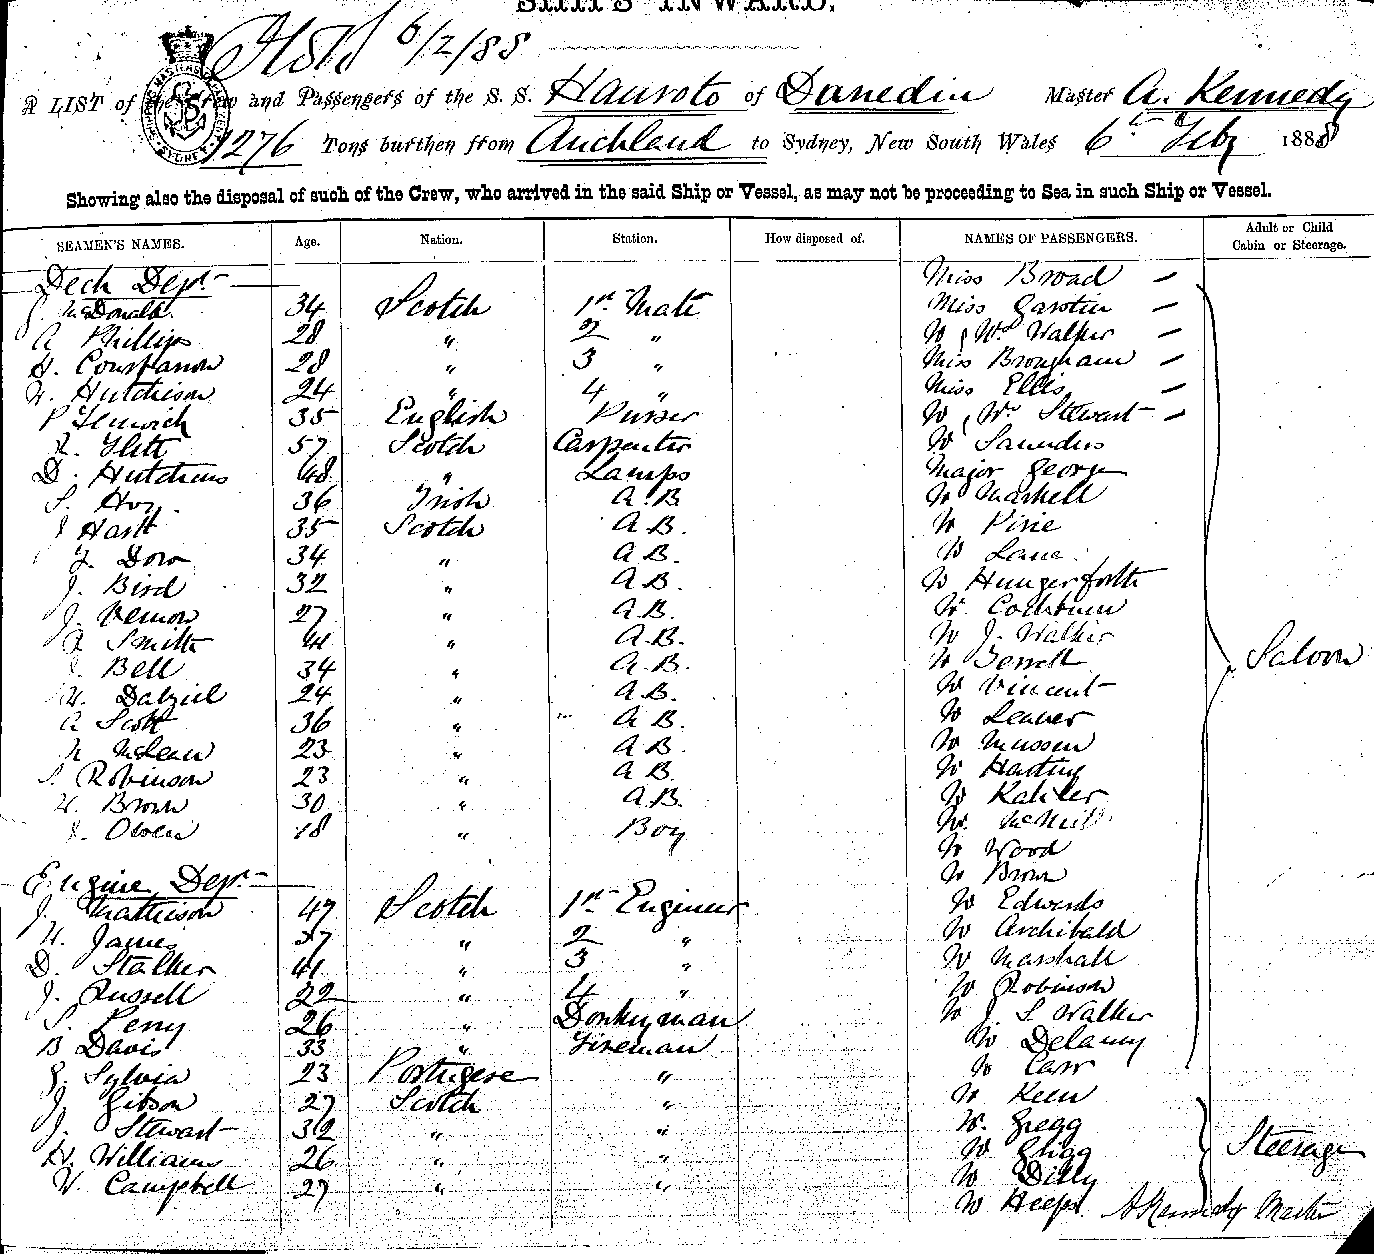 SHIPS INWARD.
6/2/88
A LIST of the Crew and Passengers of the S. S. Hauroto of Dunedin Master A. Kennedy
1276 Tons burthen from Auckland to Sydney, New South Wales 6th Feby 1888
Showing also the disposal of such of the Crew, who arrived in the said Ship or Vessel, as may not be proceeding to Sea in such Ship or Vessel.
SEAMEN'S NAMES. Age. Nation. Station. How disposed of. NAMES OF PASSENGERS. Adult or Child Cabin or Steerage.
Deck Dept. Miss Broad
J. McDonald 34 Scotch 1st Mate Miss Garstin
A Phillips 28 " 2 " Walker
28 " 3 " Miss Brougham
Hutchison 24 " 4 " Miss Ellis
P Fenwick 35 English Purser Stewart
Flett 57 Scotch Carpenter Saunders
D. Hutchins 48 " Lamps Major George
S. Hoy. 36 Irish A.B. Maskell
J Hast 35 Scotch A.B. Pirie
Dow 34 " A.B. Lane
J. Bird 32 " A.B. Hungerforth
J. Vernon 27 " A.B. Cockburn
Smith 41 " A.B. J. Walker
Bell 34 " A.B.
Dalziel 24 " A.B. Vincent Saloon
A Scott 36 " A.B. Leaver
McLean 23 " A.B. Mussen
Robinson 23 " A.B. Harting
Brown 30 " A.B. Kahler
Owen 18 " Boy McNeil
Wood
Brown
Engine Dept.
J. Mathieson 47 Scotch 1st Engineer Edwards
James 37 " 2 " Archibald
D. Stalker 41 " 3 " Marshall
J. Russell 22 " 4 " Robinson
Perry 26 " Donkeyman J. S Walker
B Davis 33 " Fireman Delaney
Sylvia 23 Portugese " Carr
J. Gibson 27 Scotch " Keen
J. Stewart 32 " " Gregg
H. Williams 26 " " Grigg Steerage
W. Campbell 27 " " Dilly
Heeps A Kennedy Master